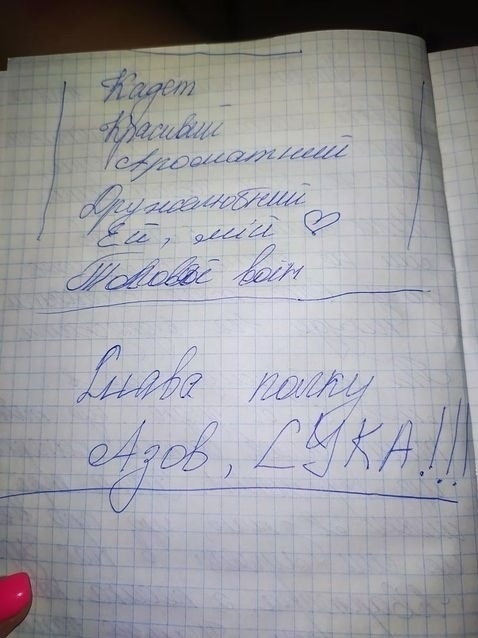 Кадет
Красивий
Ароматний
Дружелюбний
Ей, мій ♡
воїн
Слава полку
Азов, СУКА!!!